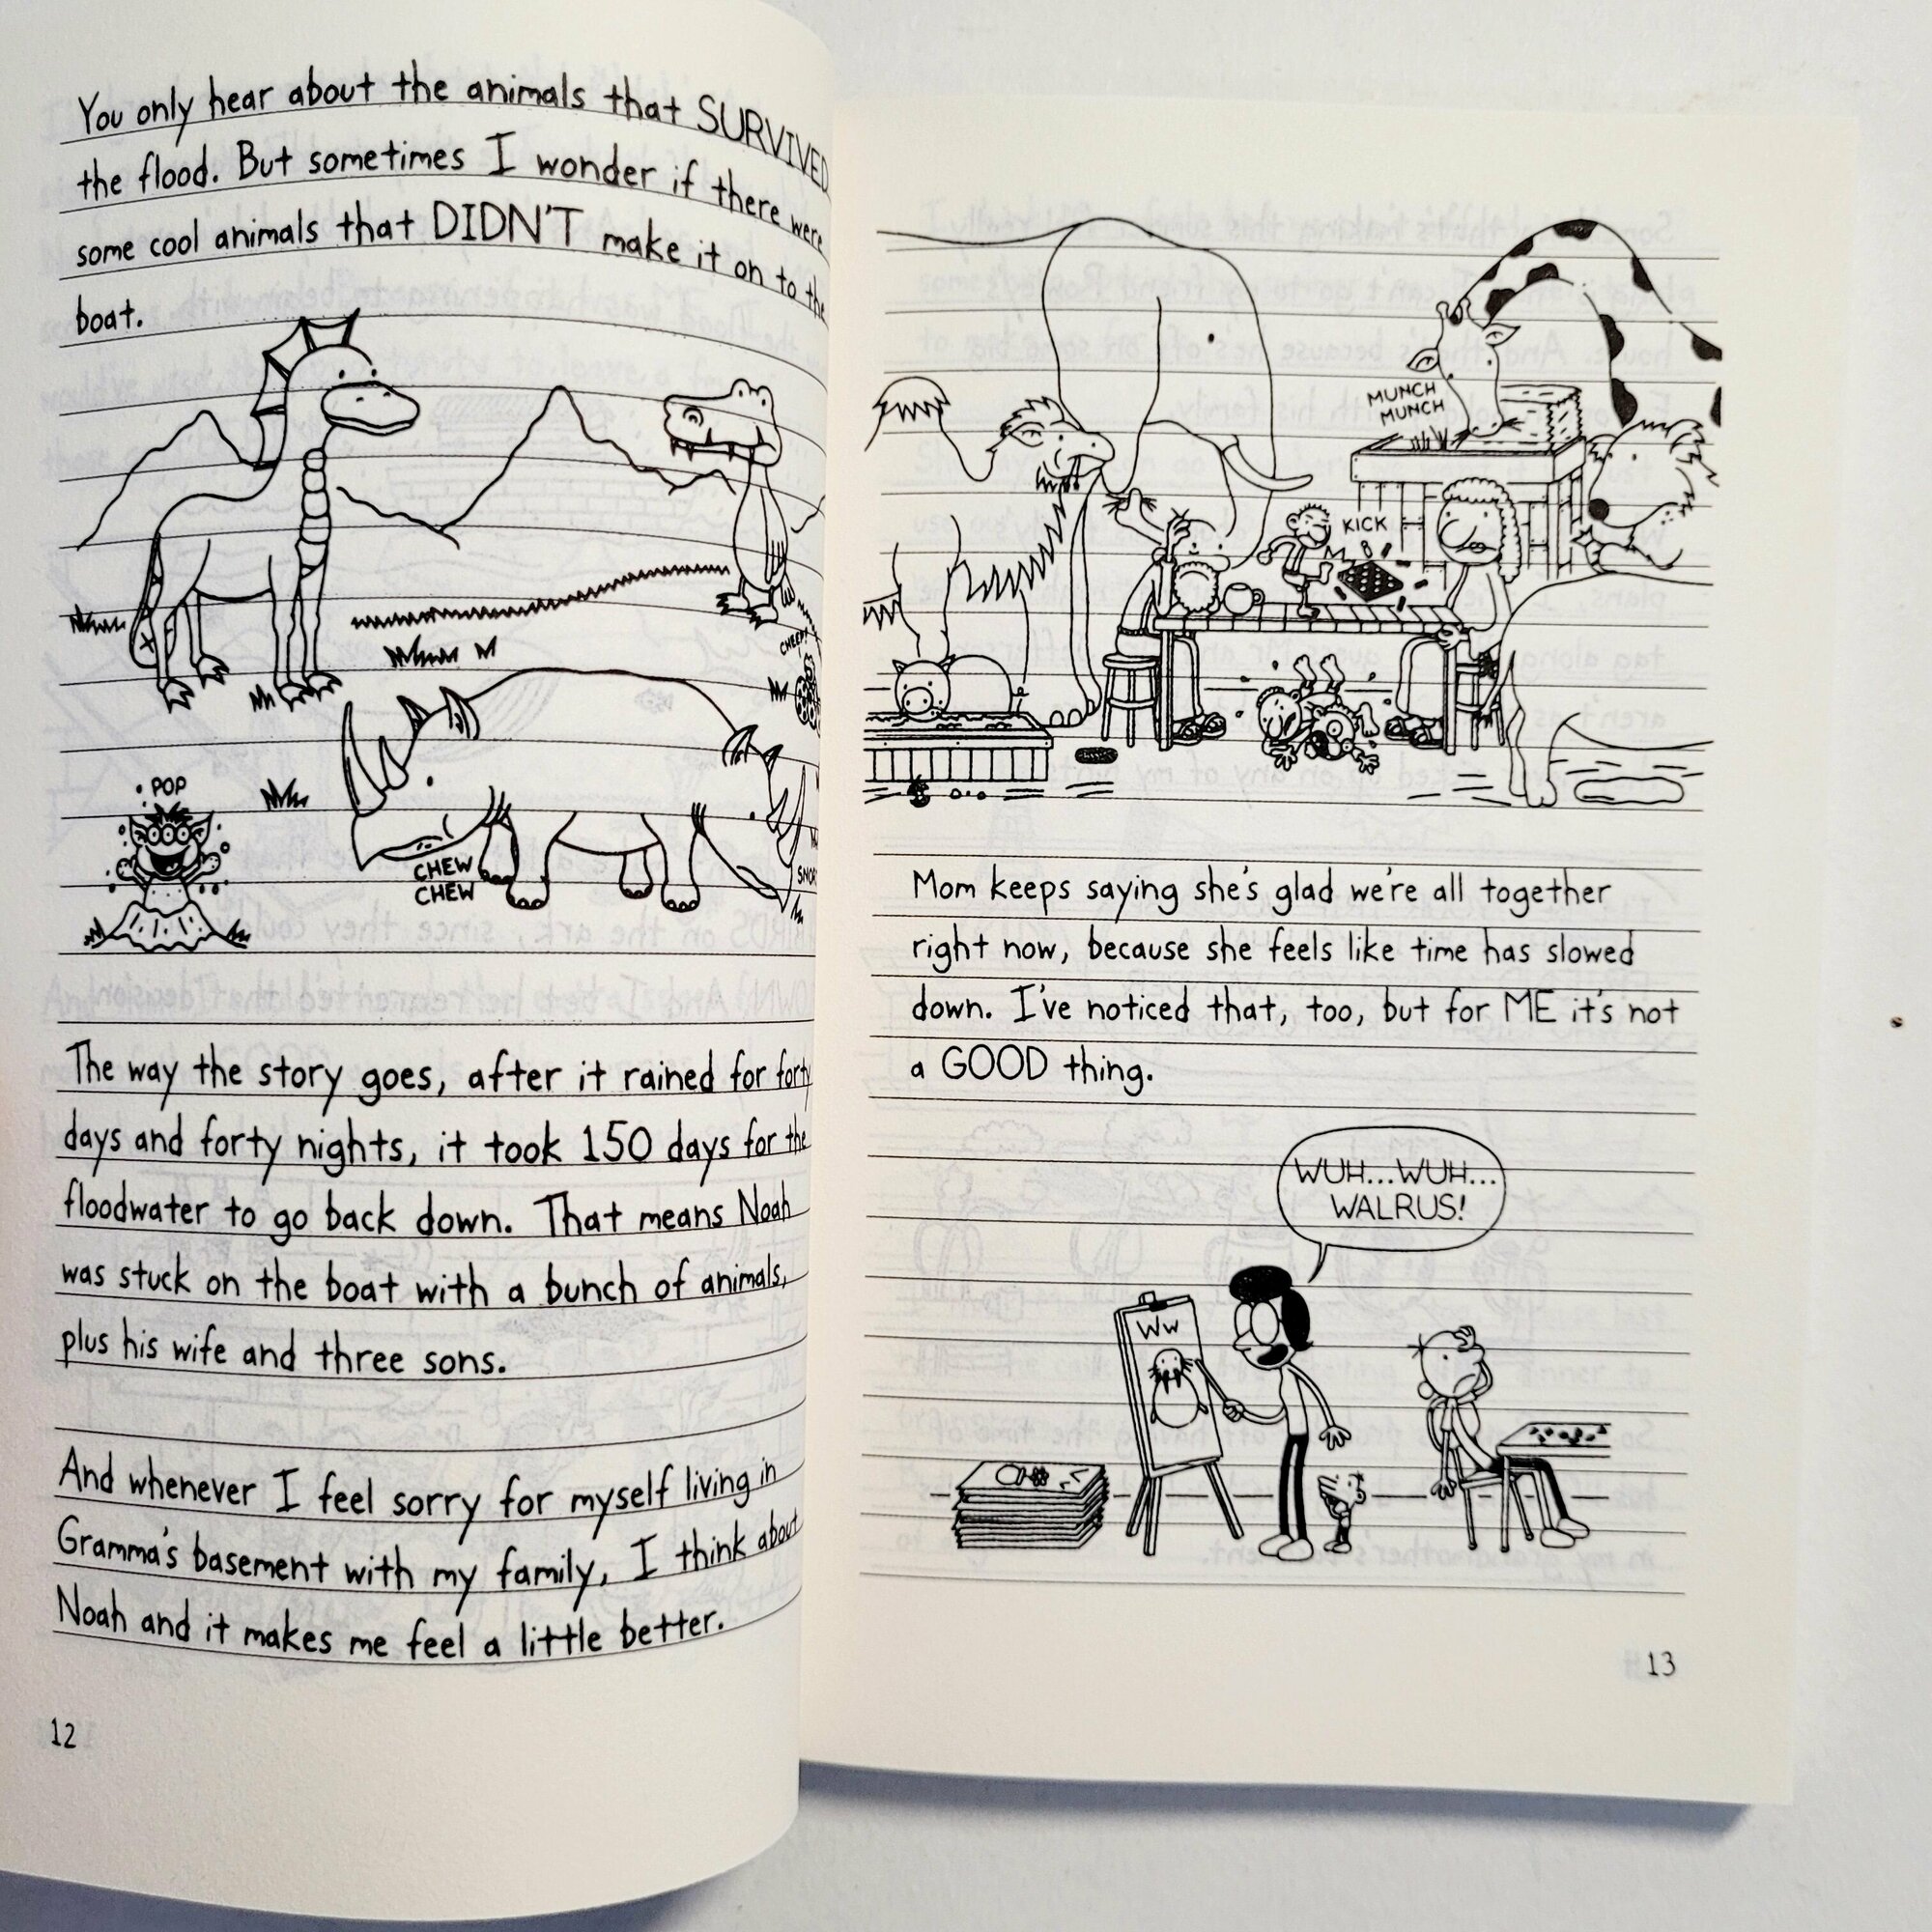 You only hear about the animals that SURVIVED
the flood. But sometimes I wonder if there were
some cool animals that DIDN'T make it on to the
boat.
CHEEP!
POP
CHEW
CHEW
The way the story goes, after it rained for forty
days and forty nights, it took 150 days for the
floodwater to go back down. That means Noah
was stuck on the boat with a bunch of animals,
plus his wife and three sons.
And whenever I feel sorry for myself living in
Gramma's basement with my family, I think about
Noah and it makes me feel a little better.
12
MUNCH
MUNCH
KICK
Mom keeps saying she's glad we're all together
right now, because she feels like time has slowed
down. I've noticed that, too, but for ME it's not
a GOOD thing.
WUH...WUH...
WALRUS!
Ww
13